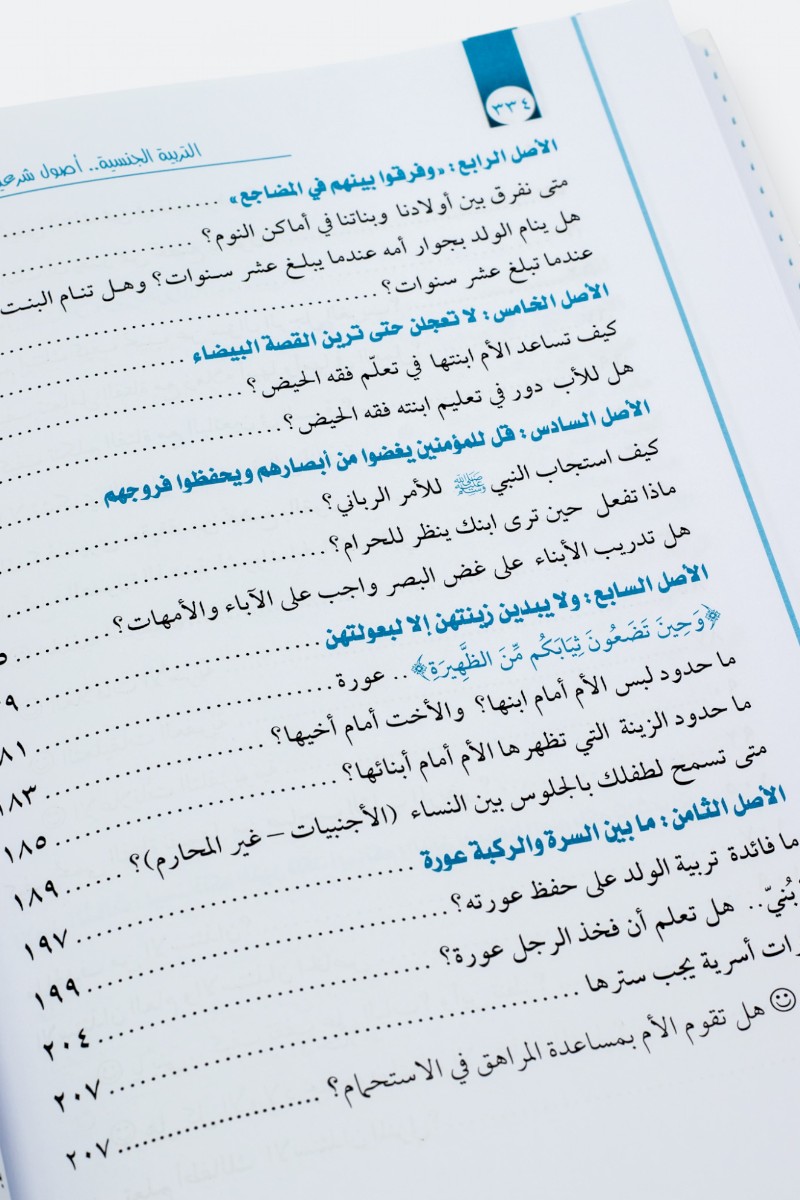 ٣٣٤
التربية الجنسية.. أصول شرعية
الأصل الرابع: «وفرقوا بينهم في المضاجع»
متى نفرق بين أولادنا وبناتنا في أماكن النوم؟
هل ينام الولد بجوار أمه عندما يبلغ عشر سنوات؟ وهل تنام البنت
عندما تبلغ عشر سنوات؟
الأصل الخامس: لا تعجلن حتى ترين القصة البيضاء
كيف تساعد الأم ابنتها في تعلّم فقه الحيض؟
هل للأب دور في تعليم ابنته فقه الحيض؟
الأصل السادس: قل للمؤمنين يغضوا من أبصارهم ويحفظوا فروجهم
كيف استجاب النبي ﷺ للأمر الرباني؟
ماذا تفعل حين ترى ابنك ينظر للحرام؟
هل تدريب الأبناء على غض البصر واجب على الآباء والأمهات؟
الأصل السابع: ولا يبدين زينتهن إلا لبعولتهن
﴿وَحِينَ تَضَعُونَ ثِيَابَكُم مِّنَ الظَّهِيرَةِ﴾.. عورة
ما حدود لبس الأم أمام ابنها؟ والأخت أمام أخيها؟
ما حدود الزينة التي تظهرها الأم أمام أبنائها؟ ١٨٥
متى تسمح لطفلك بالجلوس بين النساء (الأجنبيات – غير المحارم)؟ ١٨٩
الأصل الثامن: ما بين السرة والركبة عورة ١٩٧
ما فائدة تربية الولد على حفظ عورته؟ ١٩٩
بُنيّ.. هل تعلم أن فخذ الرجل عورة؟ ٢٠٤
أسرية يجب سترها ٢٠٧
هل تقوم الأم بمساعدة المراهق في الاستحمام؟ ٢٠٧